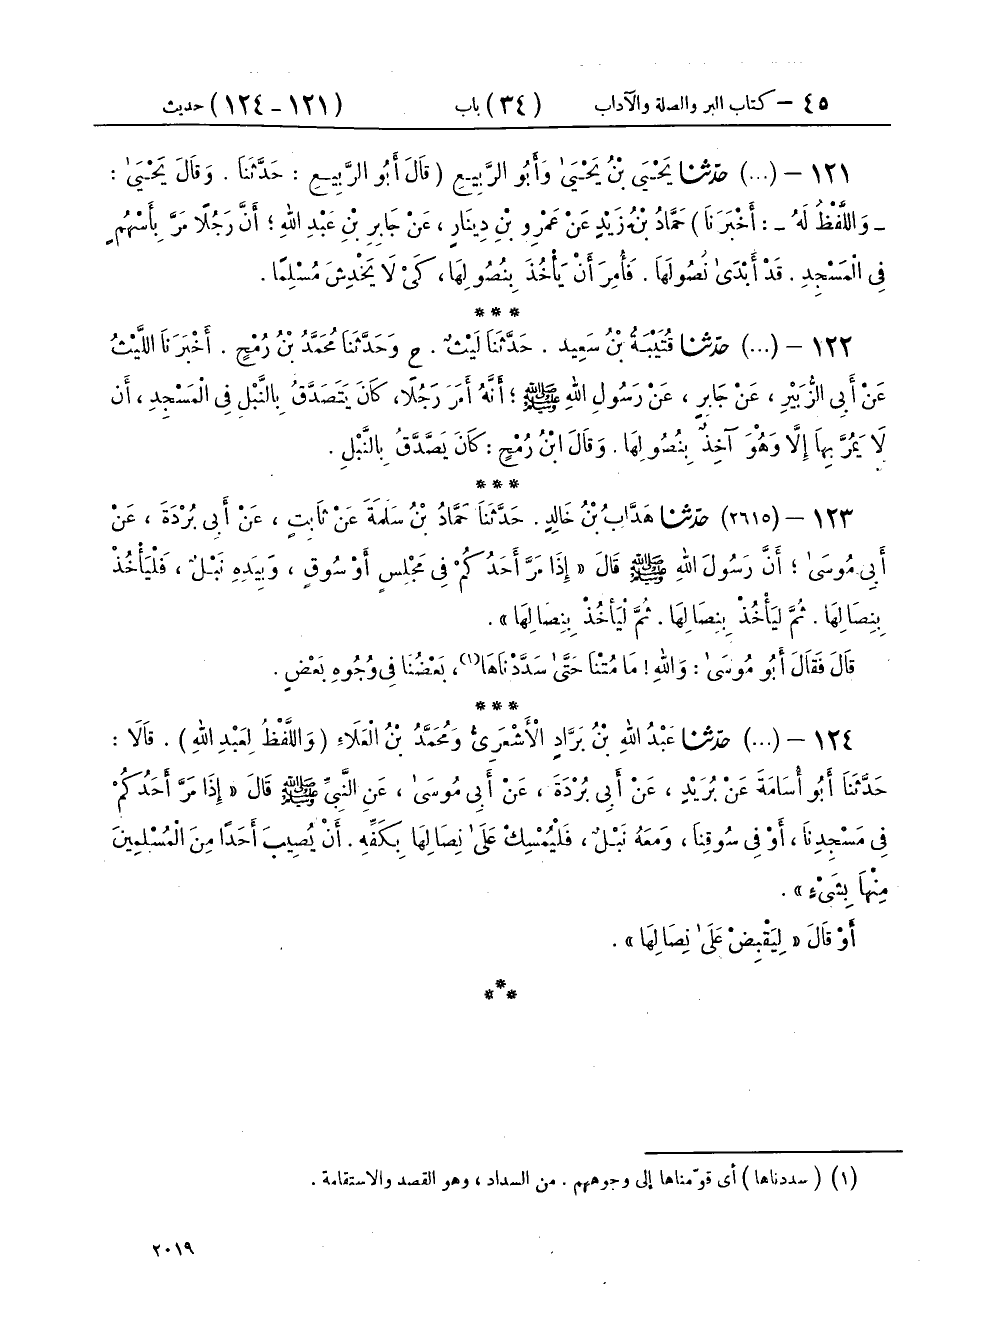 ٤٥ – كتاب البر والصلة والآداب (٣٤) باب (١٢١ – ١٢٤) حديث
١٢١ – (...) حَدَّثَنَا يَحْيَىٰ بْنُ يَحْيَىٰ وَأَبُو الرَّبِيعِ (قَالَ أَبُو الرَّبِيعِ : حَدَّثَنَا . وَقَالَ يَحْيَىٰ :
ـ وَاللَّفْظُ لَهُ ـ : أَخْبَرَنَا) حَمَّادُ بْنُ زَيْدٍ عَنْ عَمْرِو بْنِ دِينَارٍ ، عَنْ جَابِرِ بْنِ عَبْدِ اللهِ ؛ أَنَّ رَجُلًا مَرَّ بِأَسْهُمٍ
فِي الْمَسْجِدِ . قَدْ أَبْدَىٰ نُصُولَهَا . فَأُمِرَ أَنْ يَأْخُذَ بِنُصُولِهَا ، كَىْ لَا يَخْدِشَ مُسْلِمًا .
***
١٢٢ – (...) حَدَّثَنَا قُتَيْبَةُ بْنُ سَعِيدٍ . حَدَّثَنَا لَيْثٌ . ح وَحَدَّثَنَا مُحَمَّدُ بْنُ رُمْحٍ . أَخْبَرَنَا اللَّيْثُ
عَنْ أَبِي الزُّبَيْرِ ، عَنْ جَابِرٍ ، عَنْ رَسُولِ اللهِ ﷺ ؛ أَنَّهُ أَمَرَ رَجُلًا ، كَانَ يَتَصَدَّقُ بِالنَّبْلِ فِي الْمَسْجِدِ ، أَنْ
لَا يَمُرَّ بِهَا إِلَّا وَهُوَ آخِذٌ بِنُصُولِهَا . وَقَالَ ابْنُ رُمْحٍ : كَانَ يَصَّدَّقُ بِالنَّبْلِ .
***
١٢٣ – (٢٦١٥) حَدَّثَنَا هَدَّابُ بْنُ خَالِدٍ . حَدَّثَنَا حَمَّادُ بْنُ سَلَمَةَ عَنْ ثَابِتٍ ، عَنْ أَبِي بُرْدَةَ ، عَنْ
أَبِي مُوسَىٰ ؛ أَنَّ رَسُولَ اللهِ ﷺ قَالَ « إِذَا مَرَّ أَحَدُكُمْ فِي مَجْلِسٍ أَوْ سُوقٍ ، وَبِيَدِهِ نَبْلٌ ، فَلْيَأْخُذْ
بِنِصَالِهَا . ثُمَّ لْيَأْخُذْ بِنِصَالِهَا . ثُمَّ لْيَأْخُذْ بِنِصَالِهَا » .
قَالَ فَقَالَ أَبُو مُوسَىٰ : وَاللهِ ! مَا مُتْنَا حَتَّىٰ سَدَّدْنَاهَا(١) ، بَعْضُنَا فِي وُجُوهِ بَعْضٍ .
***
١٢٤ – (...) حَدَّثَنَا عَبْدُ اللهِ بْنُ بَرَّادٍ الْأَشْعَرِيُّ وَمُحَمَّدُ بْنُ الْعَلَاءِ (وَاللَّفْظُ لِعَبْدِ اللهِ) . قَالَا :
حَدَّثَنَا أَبُو أُسَامَةَ عَنْ بُرَيْدٍ ، عَنْ أَبِي بُرْدَةَ ، عَنْ أَبِي مُوسَىٰ ، عَنِ النَّبِيِّ ﷺ قَالَ « إِذَا مَرَّ أَحَدُكُمْ
فِي مَسْجِدِنَا ، أَوْ فِي سُوقِنَا ، وَمَعَهُ نَبْلٌ ، فَلْيُمْسِكْ عَلَىٰ نِصَالِهَا بِكَفِّهِ . أَنْ يُصِيبَ أَحَدًا مِنَ الْمُسْلِمِينَ
مِنْهَا بِشَيْءٍ » .
أَوْ قَالَ « لِيَقْبِضْ عَلَىٰ نِصَالِهَا » .
***
(١) (سددناها) أى قوّمناها إلى وجوههم . من السداد ، وهو القصد والاستقامة .
٢٠١٩